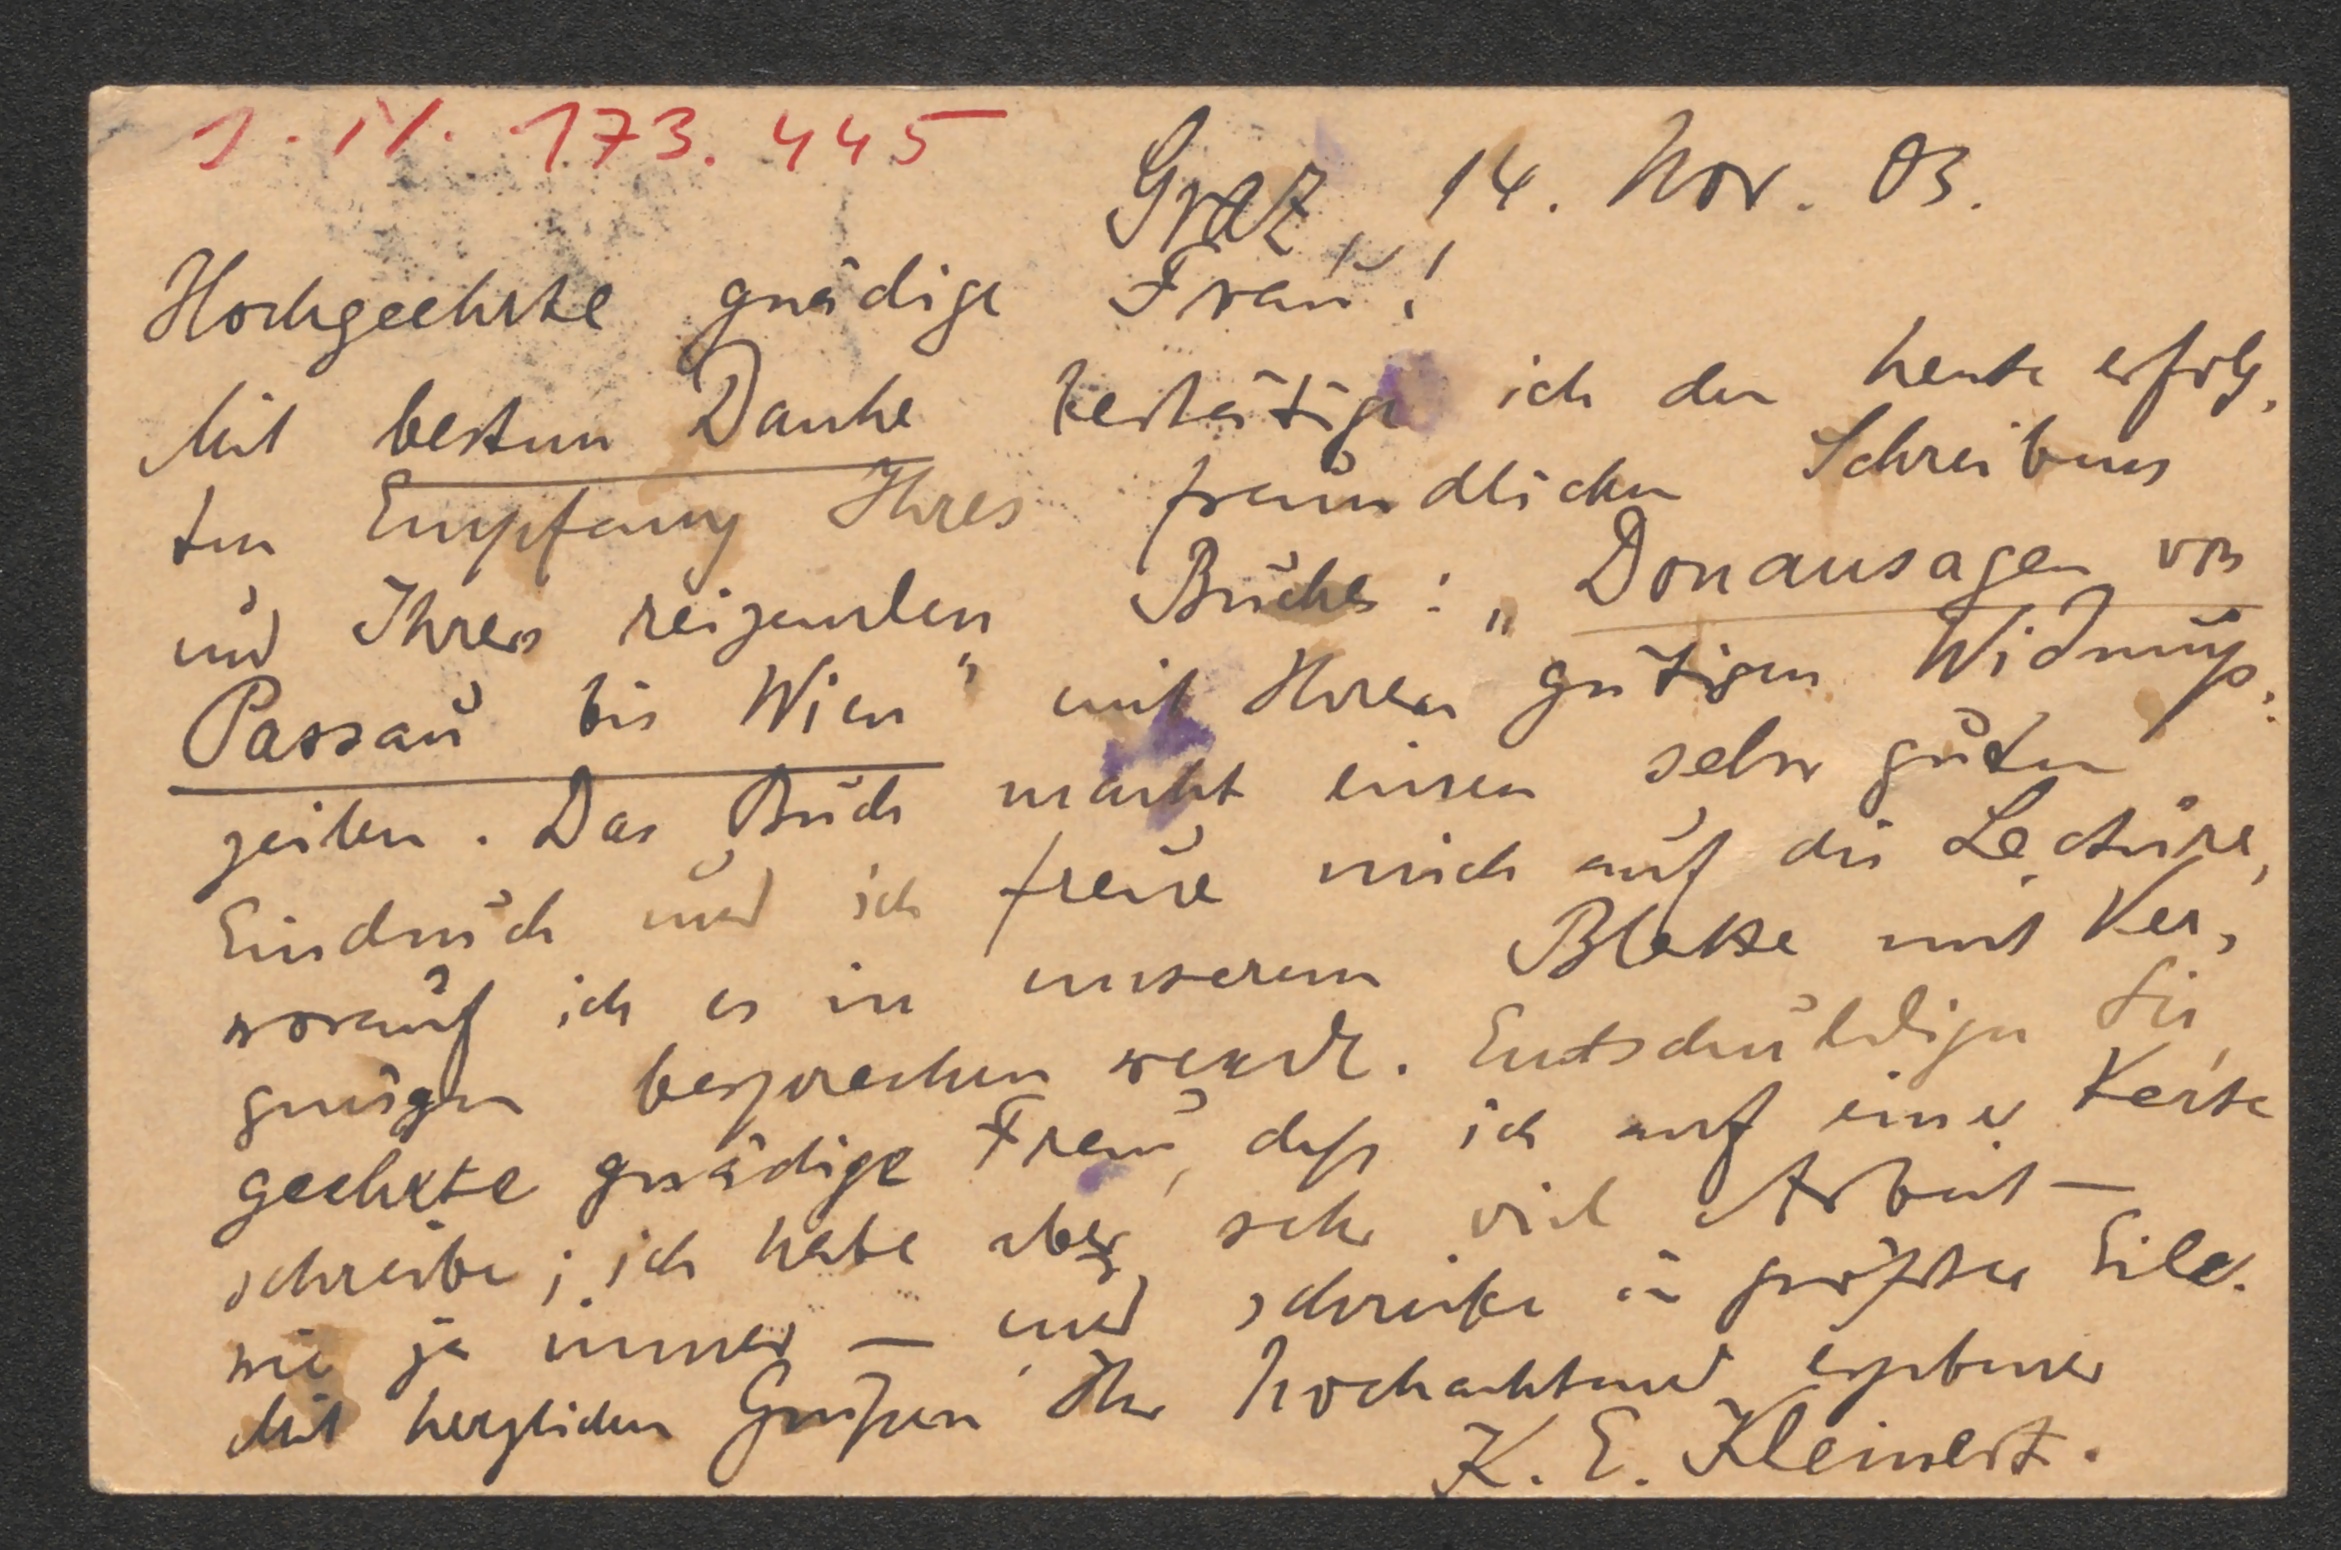 J. N. 173.445
Graz, 14. Nov. 03.
Hochgeehrte gnädige Frau!
Mit bestem Danke bestätige ich den heute erfolg,
ten Empfang Ihres freundlichen Schreibens
und Ihres reizenden Buches: „Donausagen von
Passau bis Wien" mit Ihren gütigen Widmungs:
zeilen. Das Buch macht einen sehr guten
Eindruck und ich freue mich auf die Lectüre,
worauf ich es in unserem Blatte mit Ver,
gnügen besprechen werde. Entschuldigen Sie,
geehrte gnädige Frau, daß ich auf einer Karte
schreibe; ich habe aber sehr viel Arbeit —
wie ja immer — und schreibe in größter Eile.
Mit herzlichen Grüßen Ihr hochachtend ergebener
K. E. Kleinert.